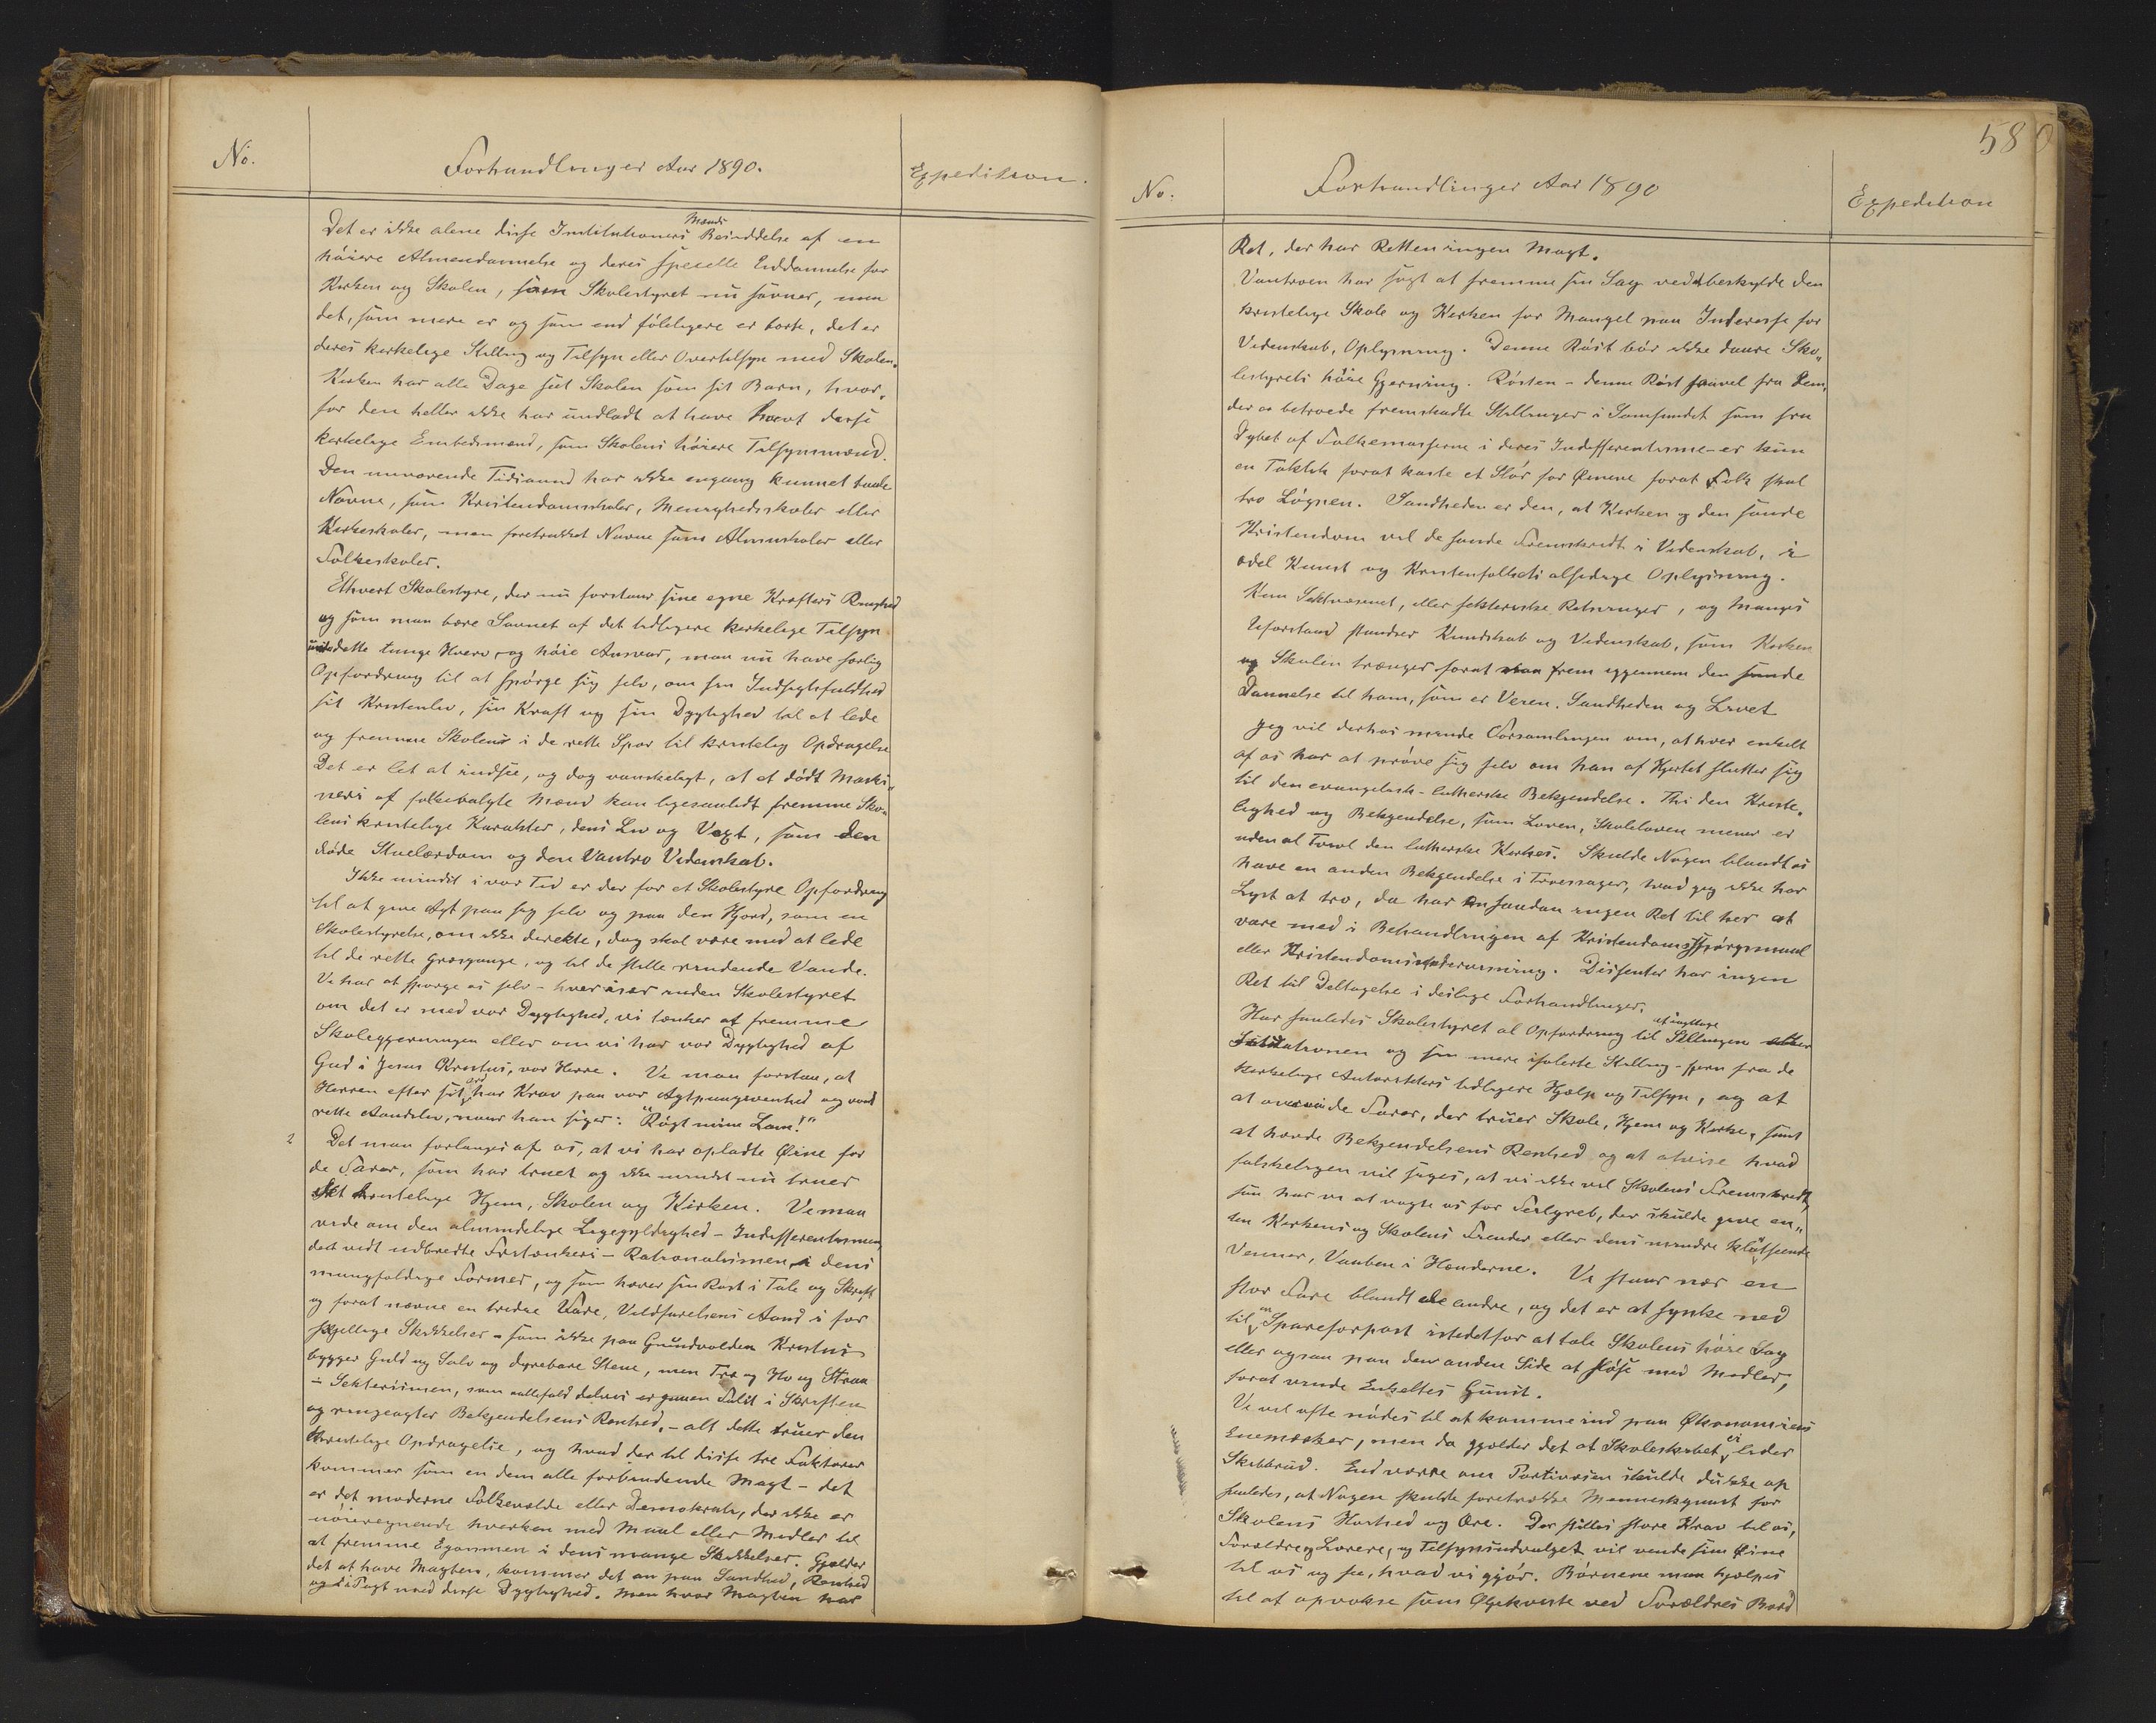 No.
Forhandlinger Aar 1890.
Expedition.
Det er ikke alene disse Institutioners Mænds Besiddelse af en
höiere Almendannelse og deres specielle Uddannelse for
Kirken og Skolen, som Skolestyret nu savner, men
det, som mere er og som end föleligere er borte, det er
deres kirkelige Stilling og Tilsyn eller Overtilsyn med Skolen.
Kirken har alle Dage seet Skolen som sit Barn, hvor„
for den heller ikke har undladt at have havt disse
kirkelige Embedsmænd, som Skolens höiere Tilsynsmænd.
Den nuværende Tidsaand har ikke engang kunnet taale
Navne, som Kristendomsskoler, Menighedsskoler eller
Kirkeskoler, men foretrukket Navne som Almuskoler eller
Folkeskoler.
Ethvert Skolestyre, der nu forstaar sine egne Kræfters Ringhed
og som maa bære Savnet af det tidligere kirkelige Tilsyn
dette tunge Hverv og höie Ansvar, maa nu have særlig
Opfordring til at spörge sig selv, om sin Indsigtsfuldhed
sit Kristenliv, sin Kraft og sin Dygtighed til at lede
og fremme Skolens i de rette Spor til kristelig Opdragelse
Det er let at indsee, og dog vanskeligt, at et dödt Maski„
neri af folkevalgte Mænd kan ligesaalidt fremme Sko„
lens kristelige Karakter, dens Liv og Vext, som den
döde Stuelærdom og den Vantro Videnskab.
Ikke mindst i vor Tid er der for et Skolestyre Opfordring
til at give Agt paa sig selv og paa den Hjord, som en
Skolestyrelse, om ikke direkte, dog skal være med at lede
til de rette Græsgange, og til de stille rindende Vande.
Vi har at spörge os selv - hver især inden Skolestyret
om det er med vor Dygtighed, vi tænker at fremme
Skolegjerningen eller om vi har vor Dygtighed af
Gud i Jesus Kristus, vor Herre. Vi maa forstaa, at
Herren efter sit Ord har Krav paa vor Agtpaagivenhed og vort
rette Aandsliv, naar han siger: "Rögt mine Lam!"
2 Det maa forlanges af os, at vi har opladte Øine for
de Farer, som har truet og ikke mindst nu truer
det kristelige Hjem, Skolen og Kirken. Vi maa
vide om den almindelige Ligegyldighed - Indifferentismen,
det vidt udbredte Fritænkeri - Rationalismen, i dens
mangfoldige Former, og som hæver sin Röst i Tale og Skrift
og forat nævne en tredie Fare, Vildfarelsens Aand i for
skjellige Skikkelser - som ikke paa Grundvolden Kristus
bygger Guld og Sölv og dyrebare Stene, men Træ og Hö og Straa
- Sekterismen, som allefald delvis er gaaen Fallit i Skriften
og ringeagter Bekjendelsens Renhed, - alt dette truer den
kristelige Opdragelse, og hvad der til disse tre Faktorer
kommer som en dem alle forbindende Magt - det
er det moderne Folkevælde eller Demokrati, der ikke er
nöieregnende hverken med Maal eller Midler til
at fremme Egoismen i dens mange Skikkelser. Gjælder
det at have Magten, kommer det an paa Sandhed, Renhed
og i Pagt med disse Dygtighed. Men hvor Magten har
580
No.
Forhandlinger Aar 1890
Expedition
Ret, der har Retten ingen Magt.
Vantroen har sögt at fremme sin Sag ved at beskylde den
kristelige Skole og Kirken for Mangel paa Interesse for
Videnskab, Oplysning. Denne Röst bör ikke daare Sko„
lestyrets höie Gjerning. Rösten - denne Röst saavel fra dem,
der er betroede fremskudte Stillinger i Samfundet som fra
Dybet af Folkemasserne i deres Indifferentisme - er kun
en Taktik forat kaste et Slör for Øinene forat Folk skal
tro Lögnen. Sandheden er den, at Kirken og den sande
Kristendom vil de sande Fremskridt i Videnskab, i
ædel Kunst og Kristenfolkets alsidige Oplysning.
Kun Sektvæsenet, eller sekteriske Retninger, og Manges
Uforstand standser Kundskab og Videnskab, som Kirken
og Skolen trænger forat naa frem igjennem den sande
Dannelse til ham, som er Veien, Sandheden og Livet
Jeg vil derhos minde Forsamlingen om, at hver enkelt
af os har at pröve sig selv om han af Hjertet slutter sig
til den evangelisk-lutherske Bekjendelse. Thi den Kriste„
lighed og Bekjendelse, som Loven, Skoleloven mener er
uden al Tvivl den lutherske Kirkes. Skulde Nogen blandt os
have en anden Bekjendelse i Troessager, hvad jeg ikke har
Lyst at tro, da har en saadan ingen Ret til her at
være med i Behandlingen af Kristendomsspörgsmaal
eller Kristendomsundervisning. Dissenter har ingen
Ret til Deltagelse i deslige Forhandlinger.
Har saaledes Skolestyret al Opfordring til at iagttage Stillingen eller
Situationen og sin mere isolerte Stilling - fjern fra de
kirkelige Autoriteters tidligere Hjælp og Tilsyn, og at
at overvinde Farer, der truer Skole, Hjem og Kirke, samt
at hævde Bekjendelsens Renhed og at afvise hvad
falskeligen vil siges, at vi ikke vil Skolens Fremskridt,
saa har vi at vogte os for Feilgreb, der skulde give en„
ten Kirkens og Skolens Fiender eller dens mindre
Venner, Vaaben i Hænderne. Vi staar nær en
stor Fare blandt de andre, og det er at synke ned
til en Spareforpost istedetfor at tale Skolens höie Sag
eller ogsaa paa den anden Side at slöse med Midler,
forat vinde Enkeltes Gunst.
Vi vil ofte nödes til at komme ind paa Økonomiens
Enemærker, men da gjælder det at Skoleskibet ei lider
Skibbrud. End værre om Partivæsen skulde dukke op
saaledes, at Nogen skulde foretrække Menneskegunst for
Skolens Höihed og Ære. Der stilles store Krav til os,
Forældre og Lærere, og Tilsynsudvalget vil vende sine Øine
til os og se, hvad vi gjör. Börnene maa hjælpes
til at opvokse som Oljekviste ved Forældres Bord